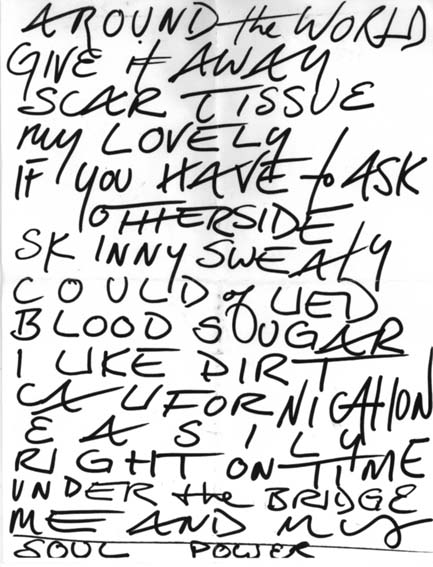 AROUND the WORLD
GIVE it AWAY
SCAR TISSUE
MY LOVELY
IF YOU HAVE to ASK
OTHERSIDE
SKINNY SWEATY
COULD of LIED
BLOOD SOUGAR
I LIKE DIRT
CALIFORNICATION
EASILY
RIGHT ON TIME
UNDER the BRIDGE
ME AND MY
SOUL POWER